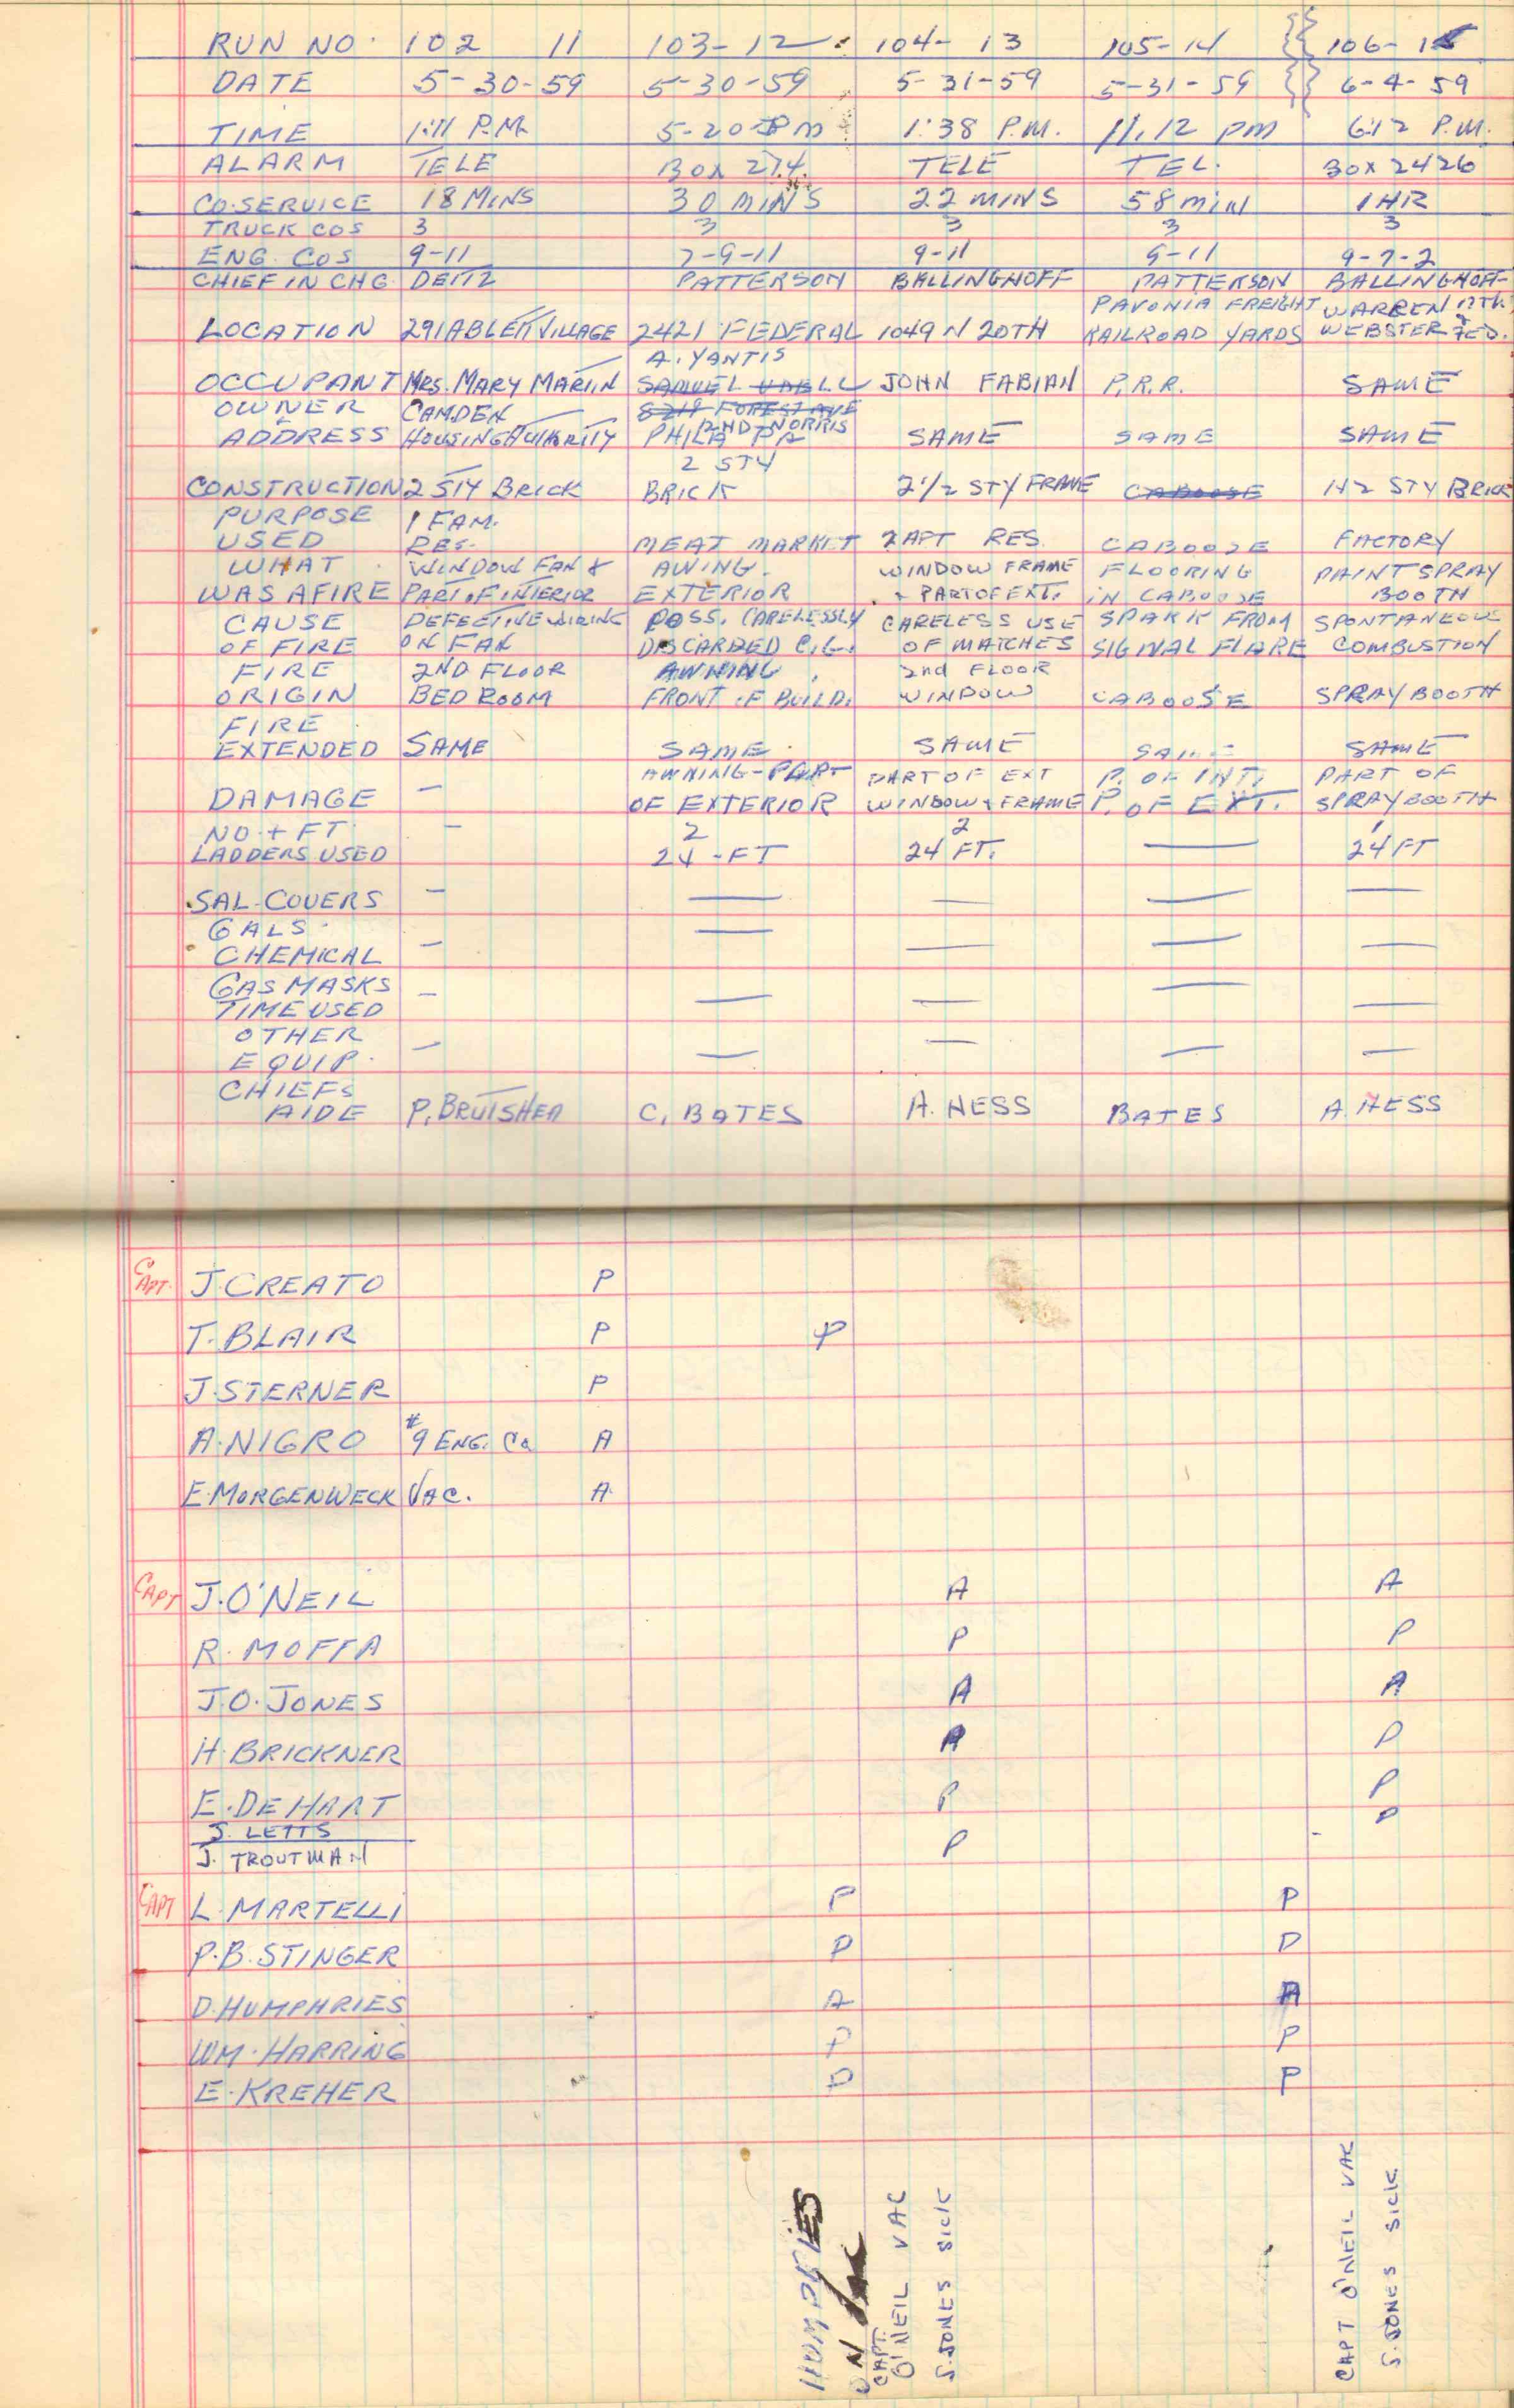 RUN NO. 102 11 103-12 104-13 105-14 106-15
DATE 5-30-59 5-30-59 5-31-59 5-31-59 6-4-59
TIME 1:11 P.M. 5-20 PM 1:38 P.M. 11,12 PM 6:12 P.M.
ALARM TELE BOX 274 TELE TEL. BOX 2426
CO. SERVICE 18 MINS 30 MINS 22 MINS 58 MIN 1 HR
TRUCK COS 3 3 3 3 3
ENG. COS 9-11 7-9-11 9-11 9-11 9-7-2
CHIEF IN CHG. DEITZ PATTERSON BALLINGHOFF PATTERSON BALLINGHOFF
PAVONIA FREIGHT WARREN 17TH
LOCATION 291 ABLETT VILLAGE 2421 FEDERAL 1049 N 20TH RAILROAD YARDS WEBSTER & FED.
A. YANTIS
OCCUPANT MRS. MARY MARTIN SAMUEL JOHN FABIAN P.R.R. SAME
OWNER CAMDEN 8219 FOREST AVE
2ND NORRIS
& ADDRESS HOUSING AUTHORITY PHILA PA SAME SAME SAME
2 STY
CONSTRUCTION 2 STY BRICK BRICK 2 1/2 STY FRAME CABOOSE 1+2 STY BRICK
PURPOSE 1 FAM.
USED RES. MEAT MARKET 2 APT RES. CABOOSE FACTORY
WHAT WINDOW FAN & AWING. WINDOW FRAME FLOORING PAINT SPRAY
WAS AFIRE PART OF INTERIOR EXTERIOR & PART OF EXT. IN CABOOSE BOOTH
CAUSE DEFECTIVE WIRING POSS. CARELESSLY CARELESS USE SPARK FROM SPONTANEOUS
OF FIRE ON FAN DISCARDED CIG. OF MATCHES SIGNAL FLARE COMBUSTION
FIRE 2ND FLOOR AWNING 2nd FLOOR
ORIGIN BED ROOM FRONT OF BUILD. WINDOW CABOOSE SPRAY BOOTH
FIRE
EXTENDED SAME SAME SAME SAME SAME
AWNING-PART PART OF EXT P. OF INT. PART OF
DAMAGE — OF EXTERIOR WINDOW & FRAME P. OF EXT. SPRAY BOOTH
NO. + FT. — 2 2 1
LADDERS USED 24-FT 24 FT. — 24 FT
SAL-COVERS — — — — —
GALS.
CHEMICAL — — — — —
GAS MASKS
TIME USED — — — — —
OTHER
EQUIP. — — — — —
CHIEFS
AIDE P. BRUTSHEA C. BATES A. HESS BATES A. HESS
CAPT. J. CREATO P
T. BLAIR P P
J. STERNER P
A. NIGRO #9 ENG. Co A
E. MORGENWECK VAC. A
CAPT J. O'NEIL A A
R. MOFFA P P
J. O. JONES A A
H. BRICKNER A P
E. DEHART P P
J. LETTS P
J. TROUTMAN P
CAPT L. MARTELLI P P
P. B. STINGER P P
D. HUMPHRIES A A
WM. HARRING P P
E. KREHER P P
ON
CAPT. O'NEIL VAC
S. JONES SICK
CAPT O'NEIL VAC
S. JONES SICK